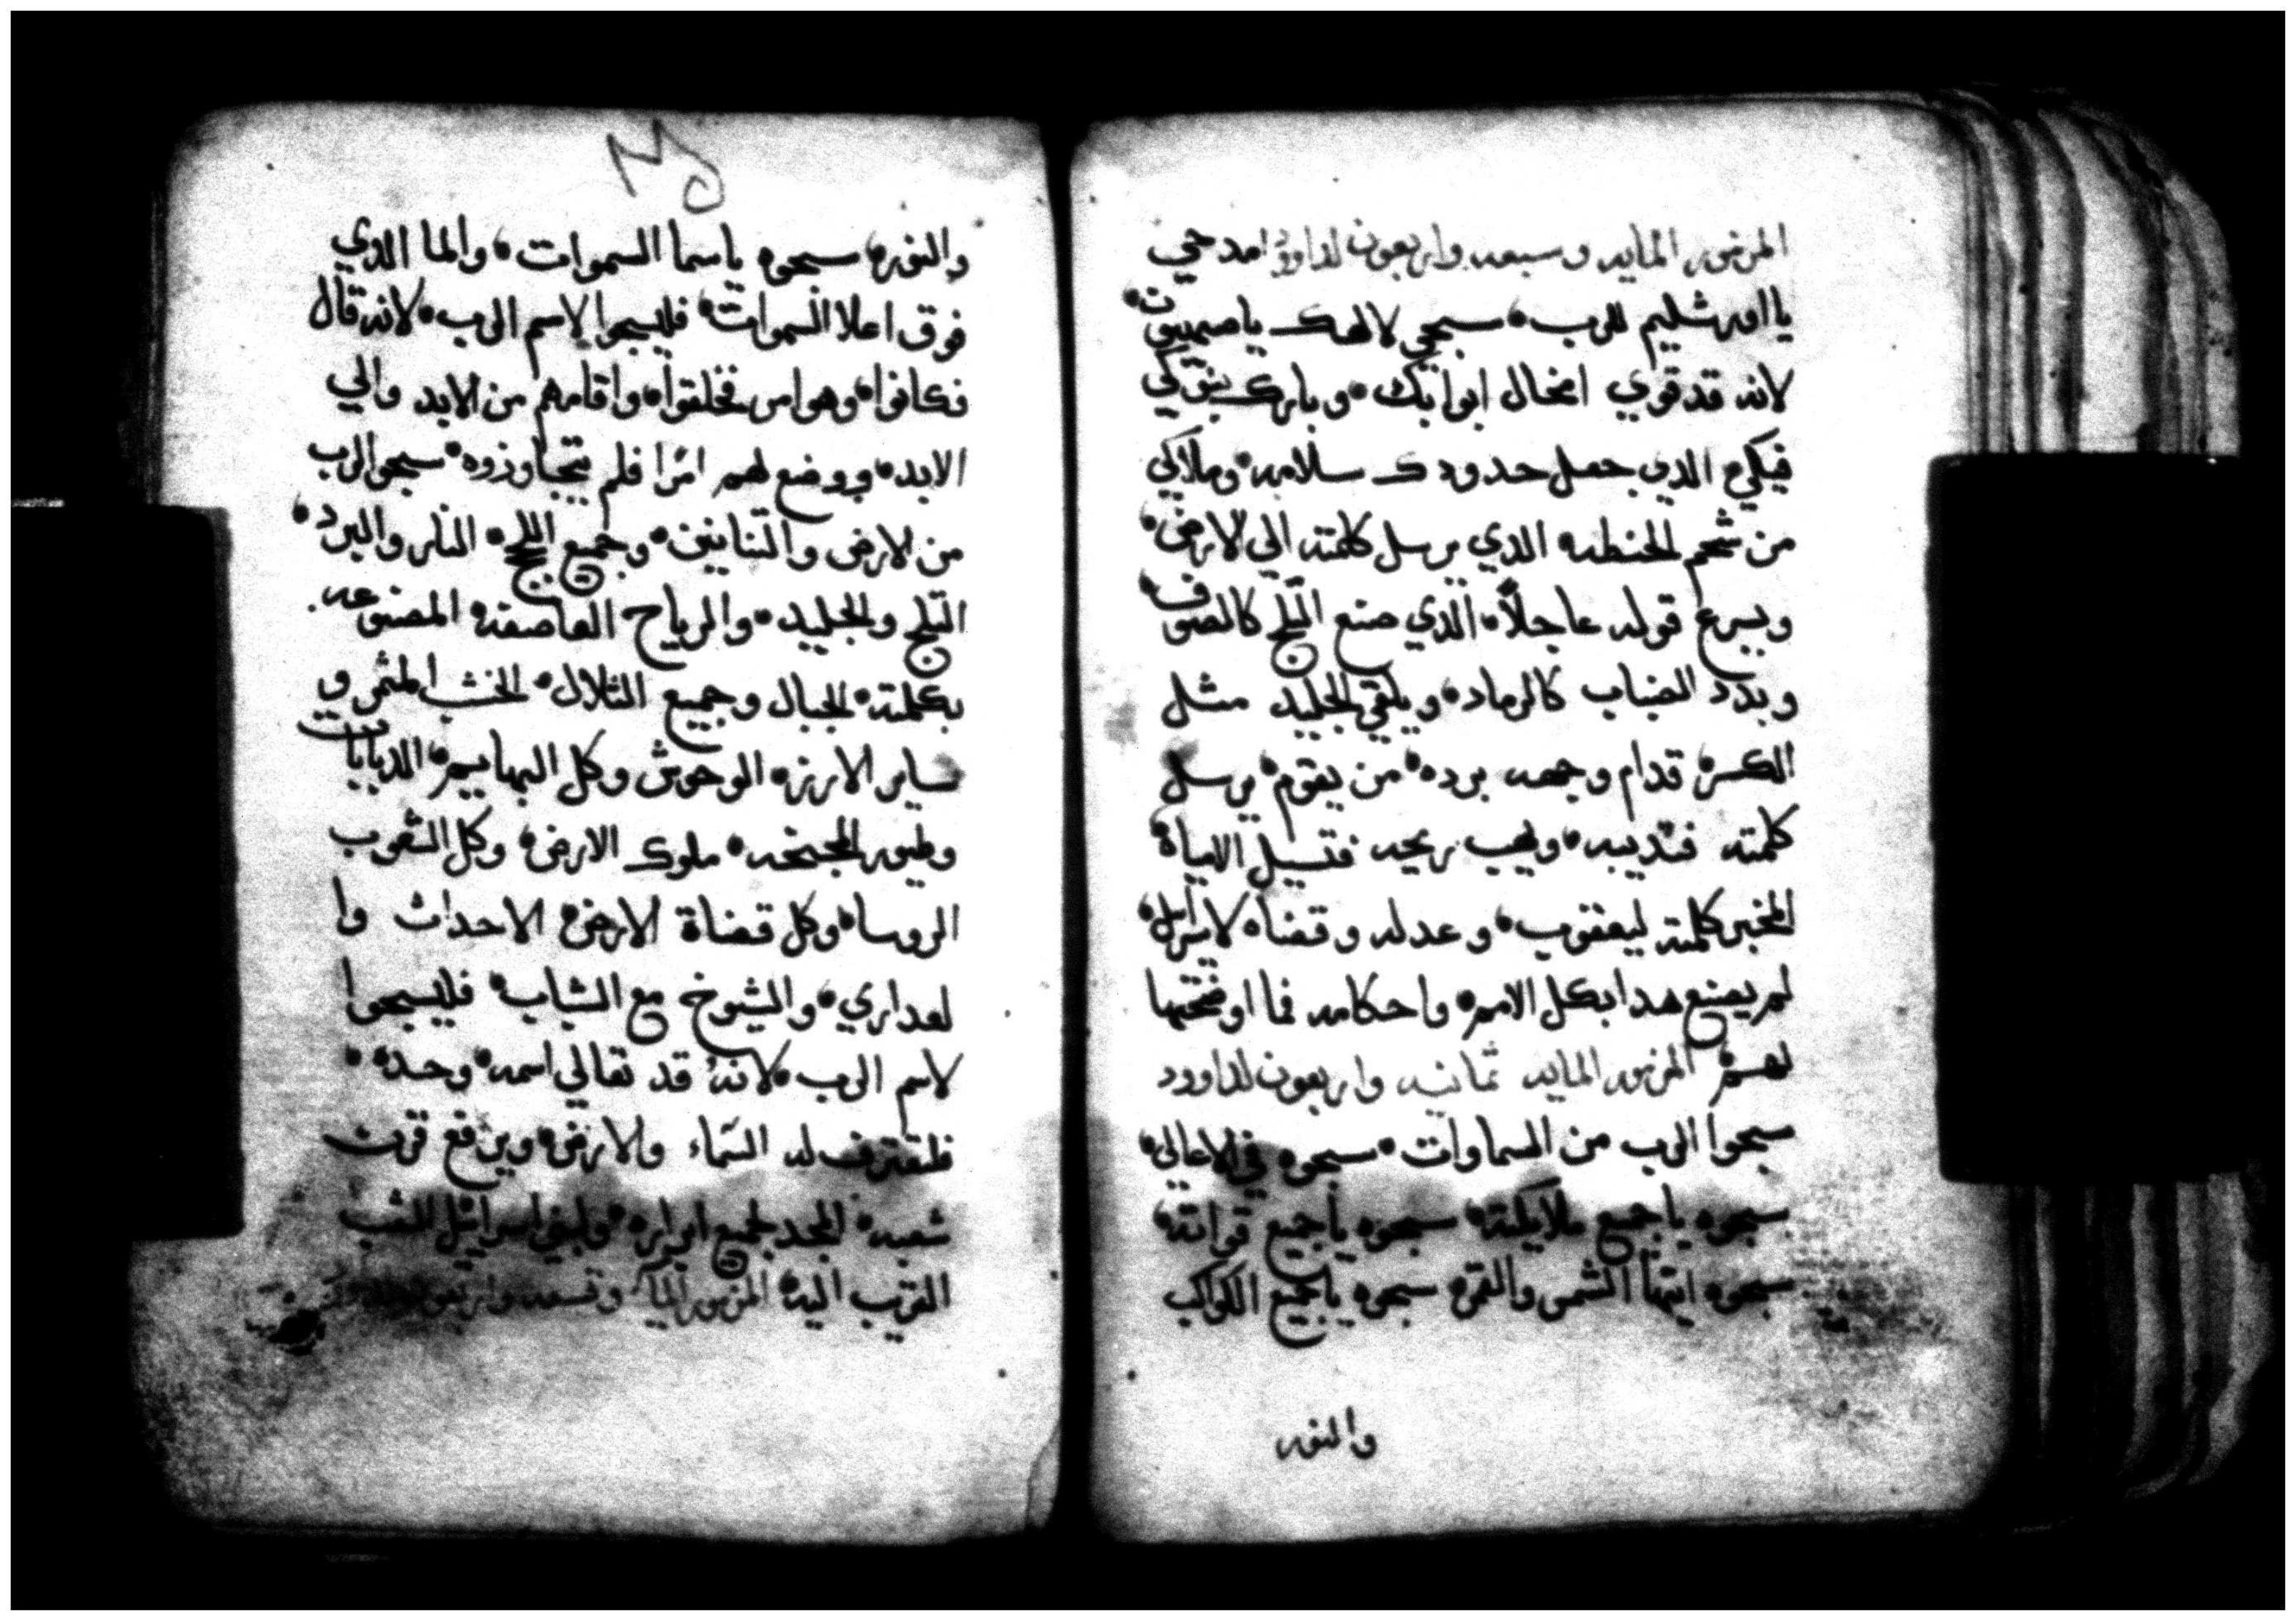 المزمور المايه وسبعه واربعون لداوود امدحي
يا اورشليم للرب، سبحي لالهك ياصهيون،
لانه قد قوي امخال ابوابك، وبارك بنوكي
فيكي، الدي جعل حدودك سلامه، وملاكي
من شحم الحنطه الدي يرسل كلمته الي الارض،
ويسرع قوله عاجلاً، الدي صنع التلج كالصوف
وبدد الضباب كالرماد، ويلقي الجليد مثل
الكسره، قدام وجهه برده، من يقوم، يرسل
كلمته فتديبه، ويهب ريحه فتسيل الامياة،
المخبر كلمته ليعقوب، وعدله وقضاه لاسرايل،
لم يصنع هدا بكل الامم، واحكامه فما اوضحها
لهم، المزمور المايه تمانيه واربعون لداوود
سبحوا الرب من السماوات، سبحوه في الاعالي،
سبحوه ياجميع ملايكته، سبحوه ياجميع قواته،
سبحوه ايتها الشمس والقمر، سبحوه ياجميع الكواكب
والنور
والنور، سبحوه ياسما السموات، والما الدي
فوق اعلا السموات، فليسبحوا لاسم الرب، لانه قال
فكانوا، وهو امر فخلقوا، واقامهم من الابد والي
الابد، ووضع لهم امرا فلم يتجاوزوه، سبحوا الرب
من الارض والتنانين، وجميع اللجج، النار والبرد،
التلج والجليد، والرياح العاصفه، المصنوعه
بكلمته، الجبال وجميع التلال، الخشب المثمر و
ساير الارز، الوحوش وكل البهايم، الدبابات
وطيور المجنحه، ملوك الارض، وكل الشعوب
الروسا، وكل قضاة الارض، الاحداث وا
لعداري، والشيوخ مع الشباب، فليسبحوا
لاسم الرب، لانه قد تعالي اسمه، وحده،
فلتعترف له السماء والارض، ويرفع قرن
شعبه، المجد لجميع ابراره، ولبني اسراييل الشعب
القريب اليه، المزمور المايه وتسعه واربعون